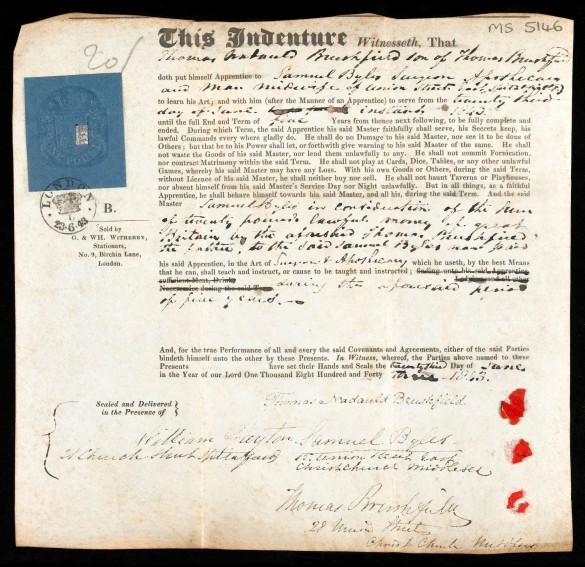 20/
MS 5146
This Indenture Witnesseth, That
Thomas Nadauld Brushfield son of Thomas Brushfield
doth put himself Apprentice to Samuel Byles Surgeon Apothecary
and Man midwife of Union Street East Spitalfields
to learn his Art; and with him (after the Manner of an Apprentice) to serve from the twenty third
day of June instant 1843.
until the full End and Term of five Years from thence next following, to be fully complete and
ended. During which Term, the said Apprentice his said Master faithfully shall serve, his Secrets keep, his
lawful Commands every where gladly do. He shall do no Damage to his said Master, nor see it to be done of
Others; but that he to his Power shall let, or forthwith give warning to his said Master of the same. He shall
not waste the Goods of his said Master, nor lend them unlawfully to any. He shall not commit Fornication,
nor contract Matrimony within the said Term. He shall not play at Cards, Dice, Tables, or any other unlawful
Games, whereby his said Master may have any Loss. With his own Goods or Others, during the said Term,
without Licence of his said Master, he shall neither buy nor sell. He shall not haunt Taverns or Playhouses,
nor absent himself from his said Master's Service Day nor Night unlawfully. But in all things, as a faithful
Apprentice, he shall behave himself towards his said Master, and all his, during the said Term. And the said
Master Samuel Byles in Consideration of the Sum
of twenty pounds lawful money of great
Britain by the aforesaid Thomas Brushfield,
the father to the said Samuel Byles now paid
his said Apprentice, in the Art of Surgeon & Apothecary which he useth, by the best Means
that he can, shall teach and instruct, or cause to be taught and instructed; finding unto his said Apprentice
sufficient Meat, Drink,
Lodging and all other
Necessaries during the said Term during the aforesaid period
of five years.
And, for the true Performance of all and every the said Covenants and Agreements, either of the said Parties
bindeth himself unto the other by these Presents. In Witness, whereof, the Parties above named to these
Presents have set their Hands and Seals the twenty third Day of June
in the Year of our Lord One Thousand Eight Hundred and Forty three 1843.
LONDON
23·6·43
B.
Sold by
G. & WH. WITHERBY,
Stationers,
No. 9, Birchin Lane,
London.
Sealed and Delivered
in the Presence of
Thomas Nadauld Brushfield.
William Clayton
21 Church Street Spitalfields
Samuel Byles
Union Street East
Christchurch Middlesex
Thomas Brushfield
28 Union Street
Christ Church Middlesex